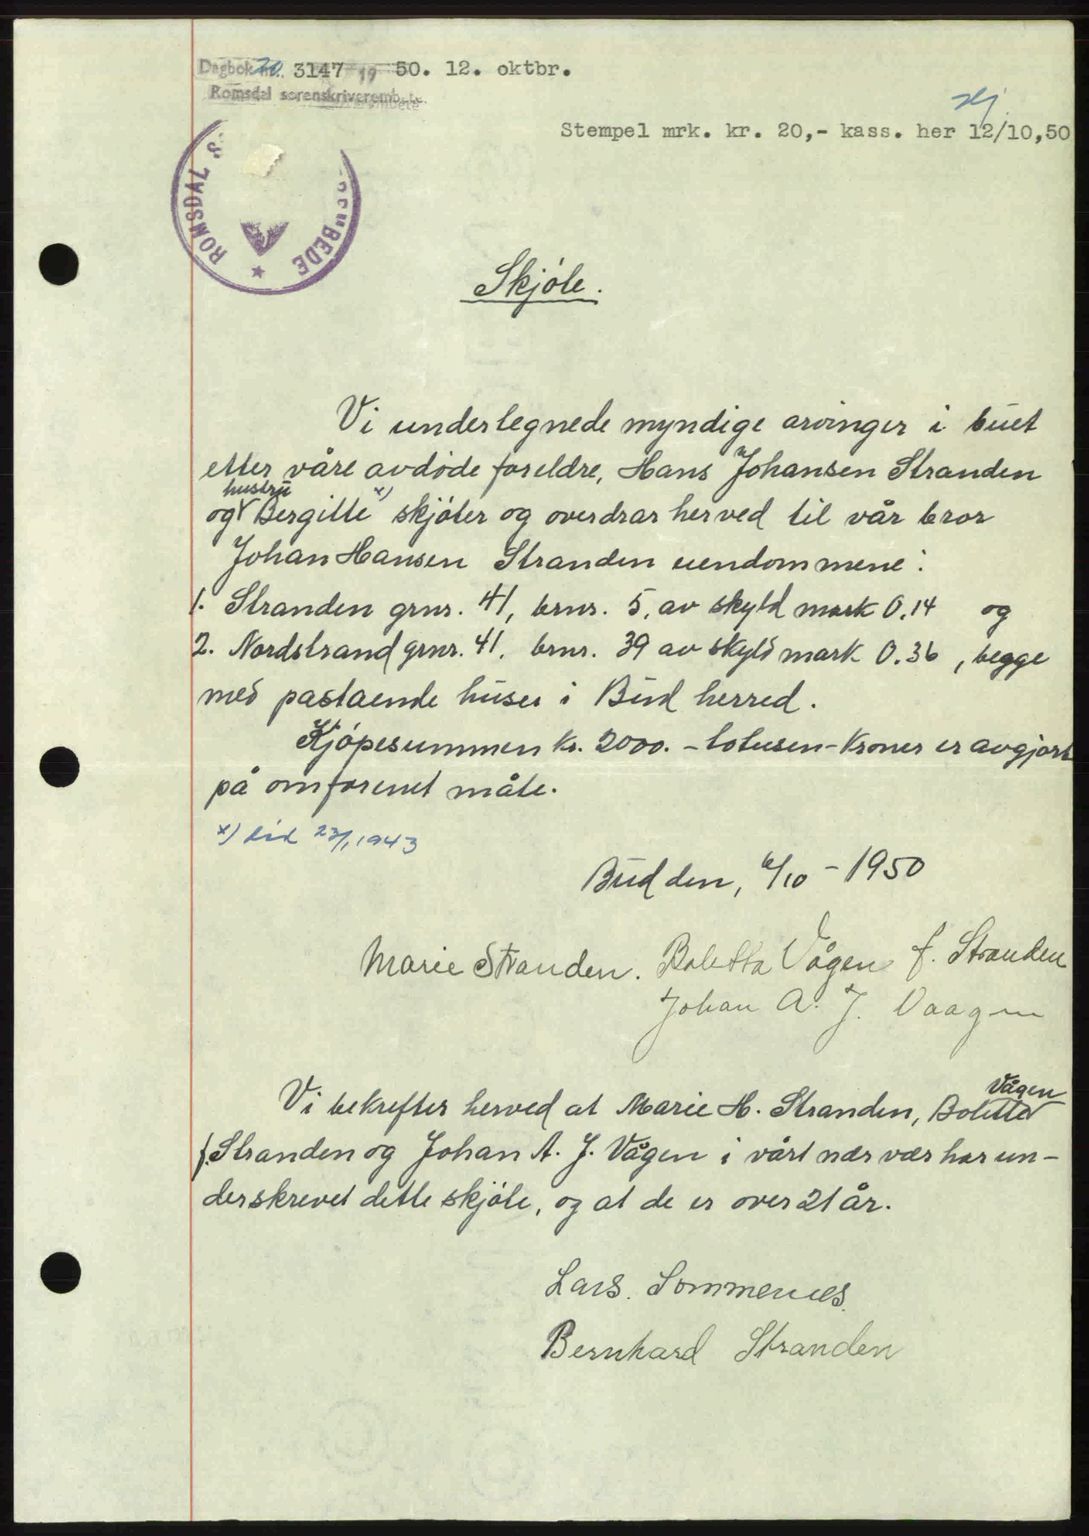 Dagbok nr. 3147 19 50. 12. oktbr.
Romsdal sorenskriverembete
Stempel mrk. kr. 20,- kass. her 12/10,50
ROMSDAL S
BEDE
Skjöte.
Vi undertegnede myndige arvinger i buet
etter våre avdöde foreldre, Hans Johansen Stranden
hustru
og Bergitte x) skjöter og overdrar herved til vår bror
Johan Hansen Stranden eiendommene:
1. Stranden grnr. 41, brnr. 5, av skyld mark 0.14 og
2. Nordstrand grnr. 41. brnr. 39 av skyld mark 0.36, begge
med påstående huser i Bud herred.
Kjöpesummen kr. 2000.- totusen-kroner er avgjort
på omforenet måte.
x) död 23/1 1943
Bud den, 6/10 - 1950
Marie Stranden. Boletta Vågen f. Stranden
Johan A. J. Vaagen
Vågen
Vi bekrefter herved at Marie H. Stranden, Bolette
f. Stranden og Johan A. J. Vågen i vårt nærvær har un-
derskrevet dette skjöte, og at de er over 21 år.
Lars. Sommernes.
Bernhard Stranden